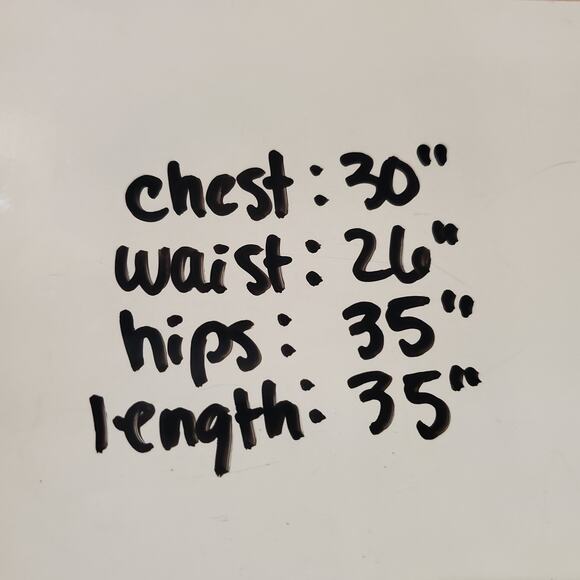 chest: 30"
waist: 26"
hips: 35"
length: 35"